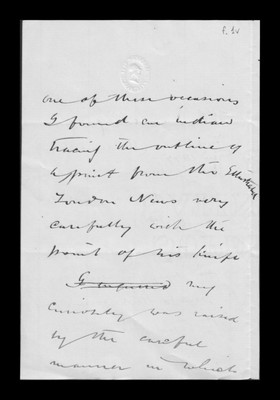 f. 1v
one of these occasions
I found an indian
tracing the outline of
a print from the Illustrated
London News very
carefully with the
point of his knife
my
curiosity was raised
by the careful
manner in which